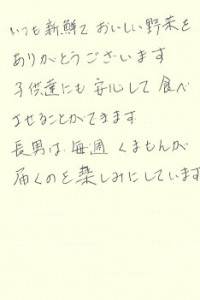 いつも新鮮で おいしい野菜を
ありがとうございます
子供達にも 安心して 食べ
させることができます
長男は、毎週 くまもんが
届くのを 楽しみにしています